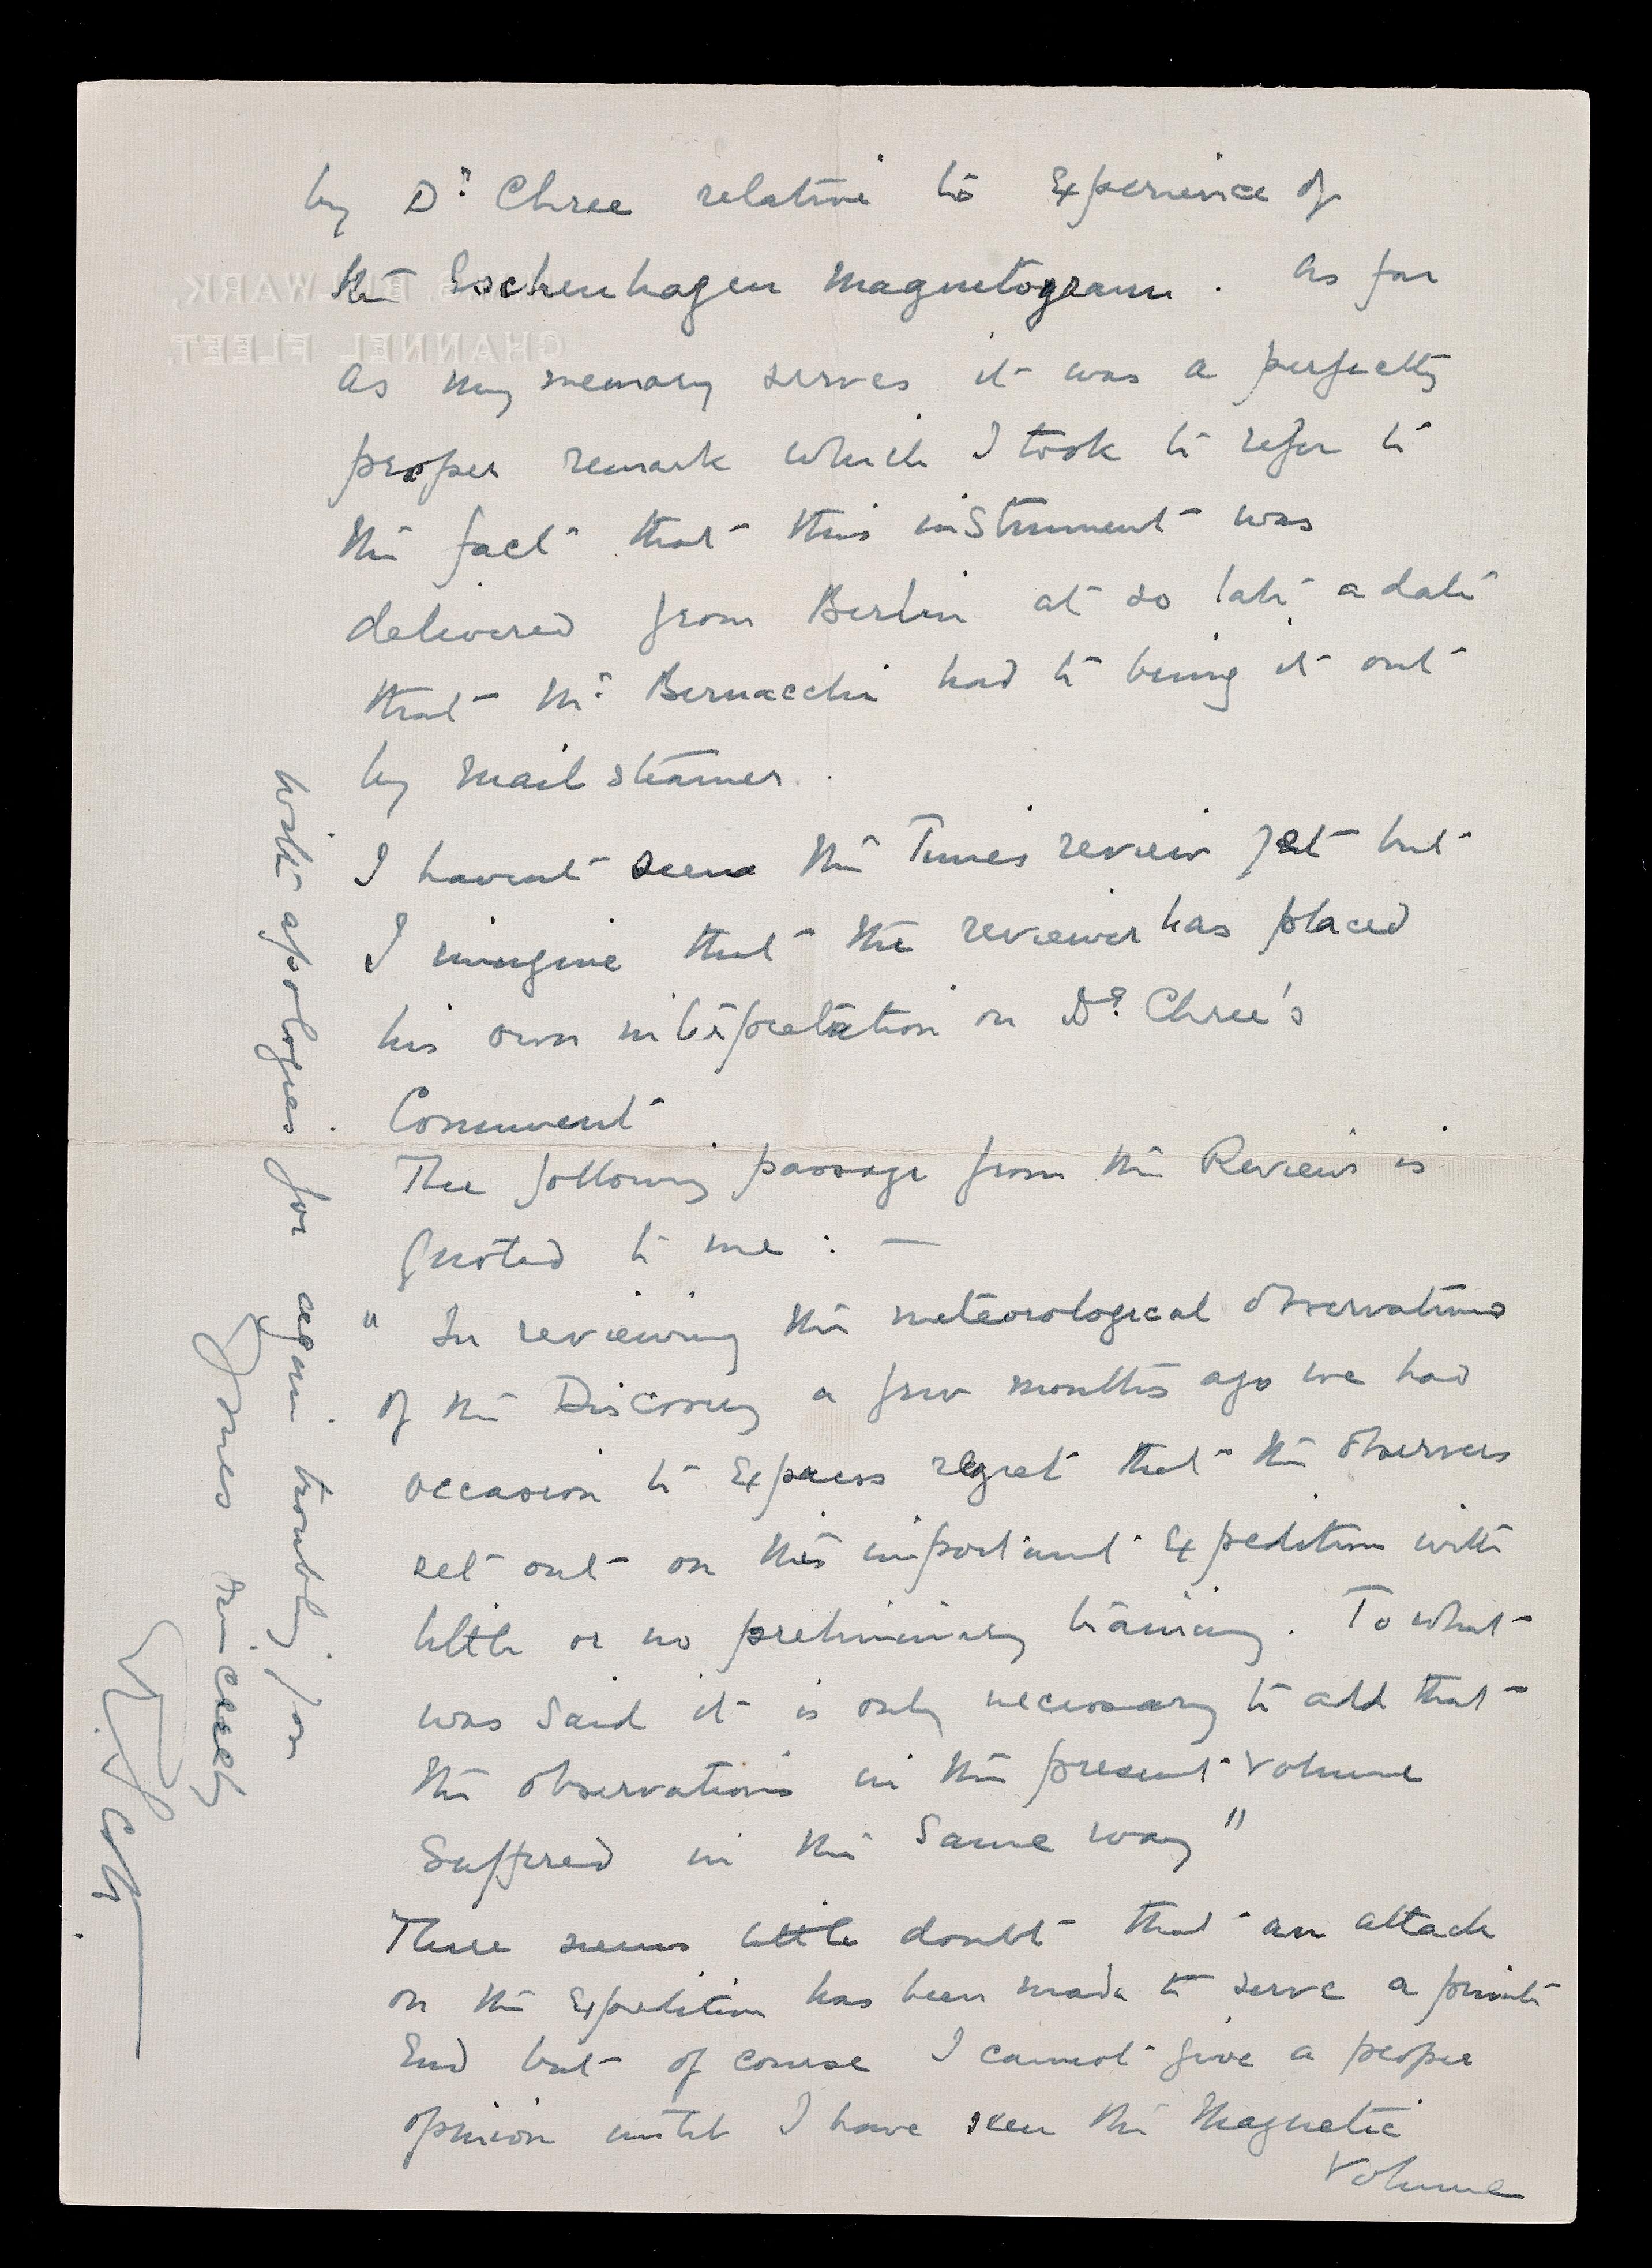 by Dr. Chree relative to Experience of
the Eschenhagen Magnetogram. As far
as my memory serves it was a perfectly
proper remark which I took to refer to
the fact that this instrument was
delivered from Berlin at so late a date
that Mr. Bernacchi had to bring it out
by Mail steamer.
I havent seen the Times review yet but
I imagine that the reviewer has placed
his own interpretation on Dr. Chree's
Comment
The following passage from the Review is
quoted to me : —
" In reviewing the meteorological observations
of the Discovery a few months ago we had
occasion to Express regret that the observers
set out on this important Expedition with
little or no preliminary training. To what
was said it is only necessary to add that
the observations in the present volume
suffered in the same way "
There seems little doubt that an attack
on the Expedition has been made to serve a private
End but of course I cannot give a proper
opinion until I have seen the Magnetic
Volume
With apologies for again troubling you
Yours sincerely
R Scott
BULWARK,
CHANNEL FLEET.